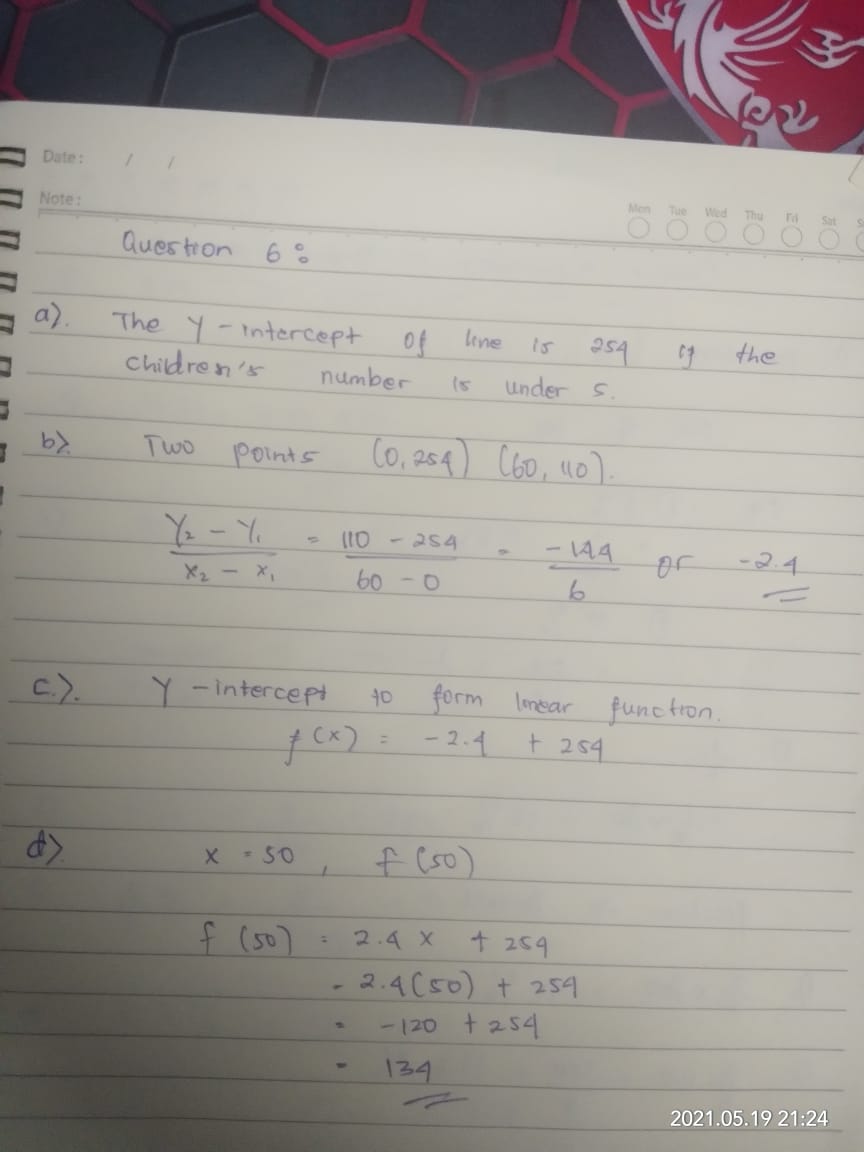 Date: / /
Note:
Mon Tue Wed Thu Fri Sat S
Question 6:
a). The Y-intercept of line is 254 if the
children's number is under 5.
b). Two points (0, 254) (60, 110).
Y₂ - Y₁ / x₂ - x₁ = 110 - 254 / 60 - 0 = -144 / 6 or -2.4
c.). Y-intercept to form linear function.
f(x) = -2.4 + 254
d). x = 50, f(50)
f(50) = 2.4 x + 254
- 2.4(50) + 254
= -120 + 254
= 134
2021.05.19 21:24